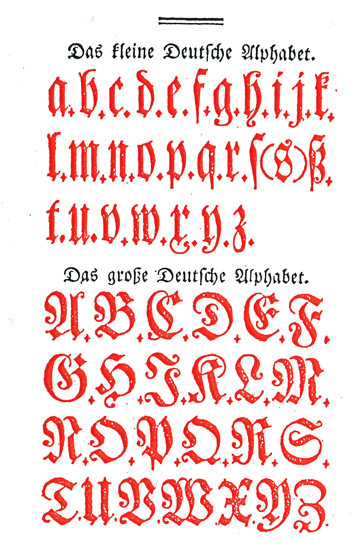 Das kleine Deutſche Alphabet.
a.b.c.d.e.f.g.h.i.j.k.
l.m.n.o.p.q.r.ſ(s)ß.
t.u.v.w.x.y.z.
Das große Deutſche Alphabet.
A.B.C.D.E.F.
G.H.I.K.L.M.
N.O.P.Q.R.S.
T.U.V.W.X.Y.Z.